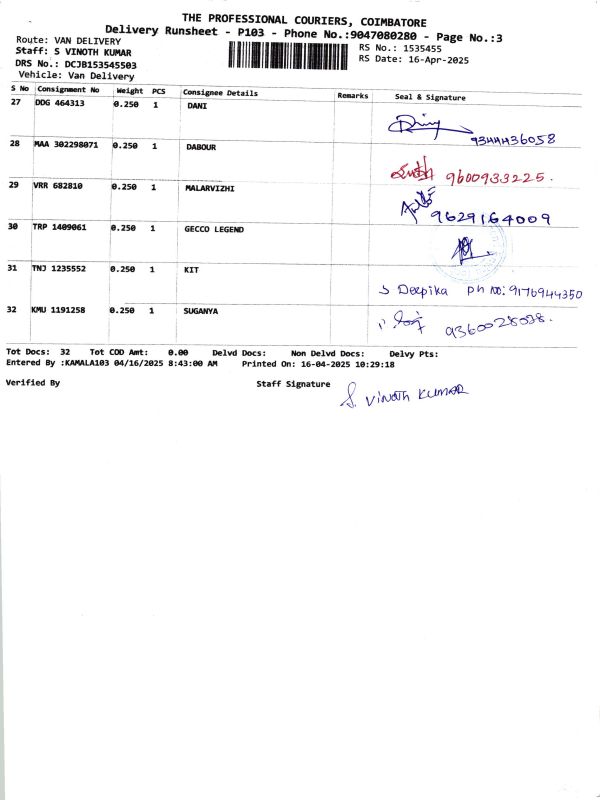 THE PROFESSIONAL COURIERS, COIMBATORE
Delivery Runsheet - P103 - Phone No.:9047080280 - Page No.:3
Route: VAN DELIVERY
RS No.: 1535455
Staff: S VINOTH KUMAR
RS Date: 16-Apr-2025
DRS No.: DCJB153545503
Vehicle: Van Delivery
S No Consignment No Weight PCS Consignee Details Remarks Seal & Signature
27 DDG 464313 0.250 1 DANI
9344436058
28 MAA 302298071 0.250 1 DABOUR
9600933225.
29 VRR 682810 0.250 1 MALARVIZHI
9629164009
30 TRP 1409061 0.250 1 GECCO LEGEND
31 TNJ 1235552 0.250 1 KIT
S Deepika Ph No: 9176944350
32 KMU 1191258 0.250 1 SUGANYA
9360028038.
Tot Docs: 32 Tot COD Amt: 0.00 Delvd Docs: Non Delvd Docs: Delvy Pts:
Entered By :KAMALA103 04/16/2025 8:43:00 AM Printed On: 16-04-2025 10:29:18
Verified By Staff Signature
S. VINOTH KUMAR